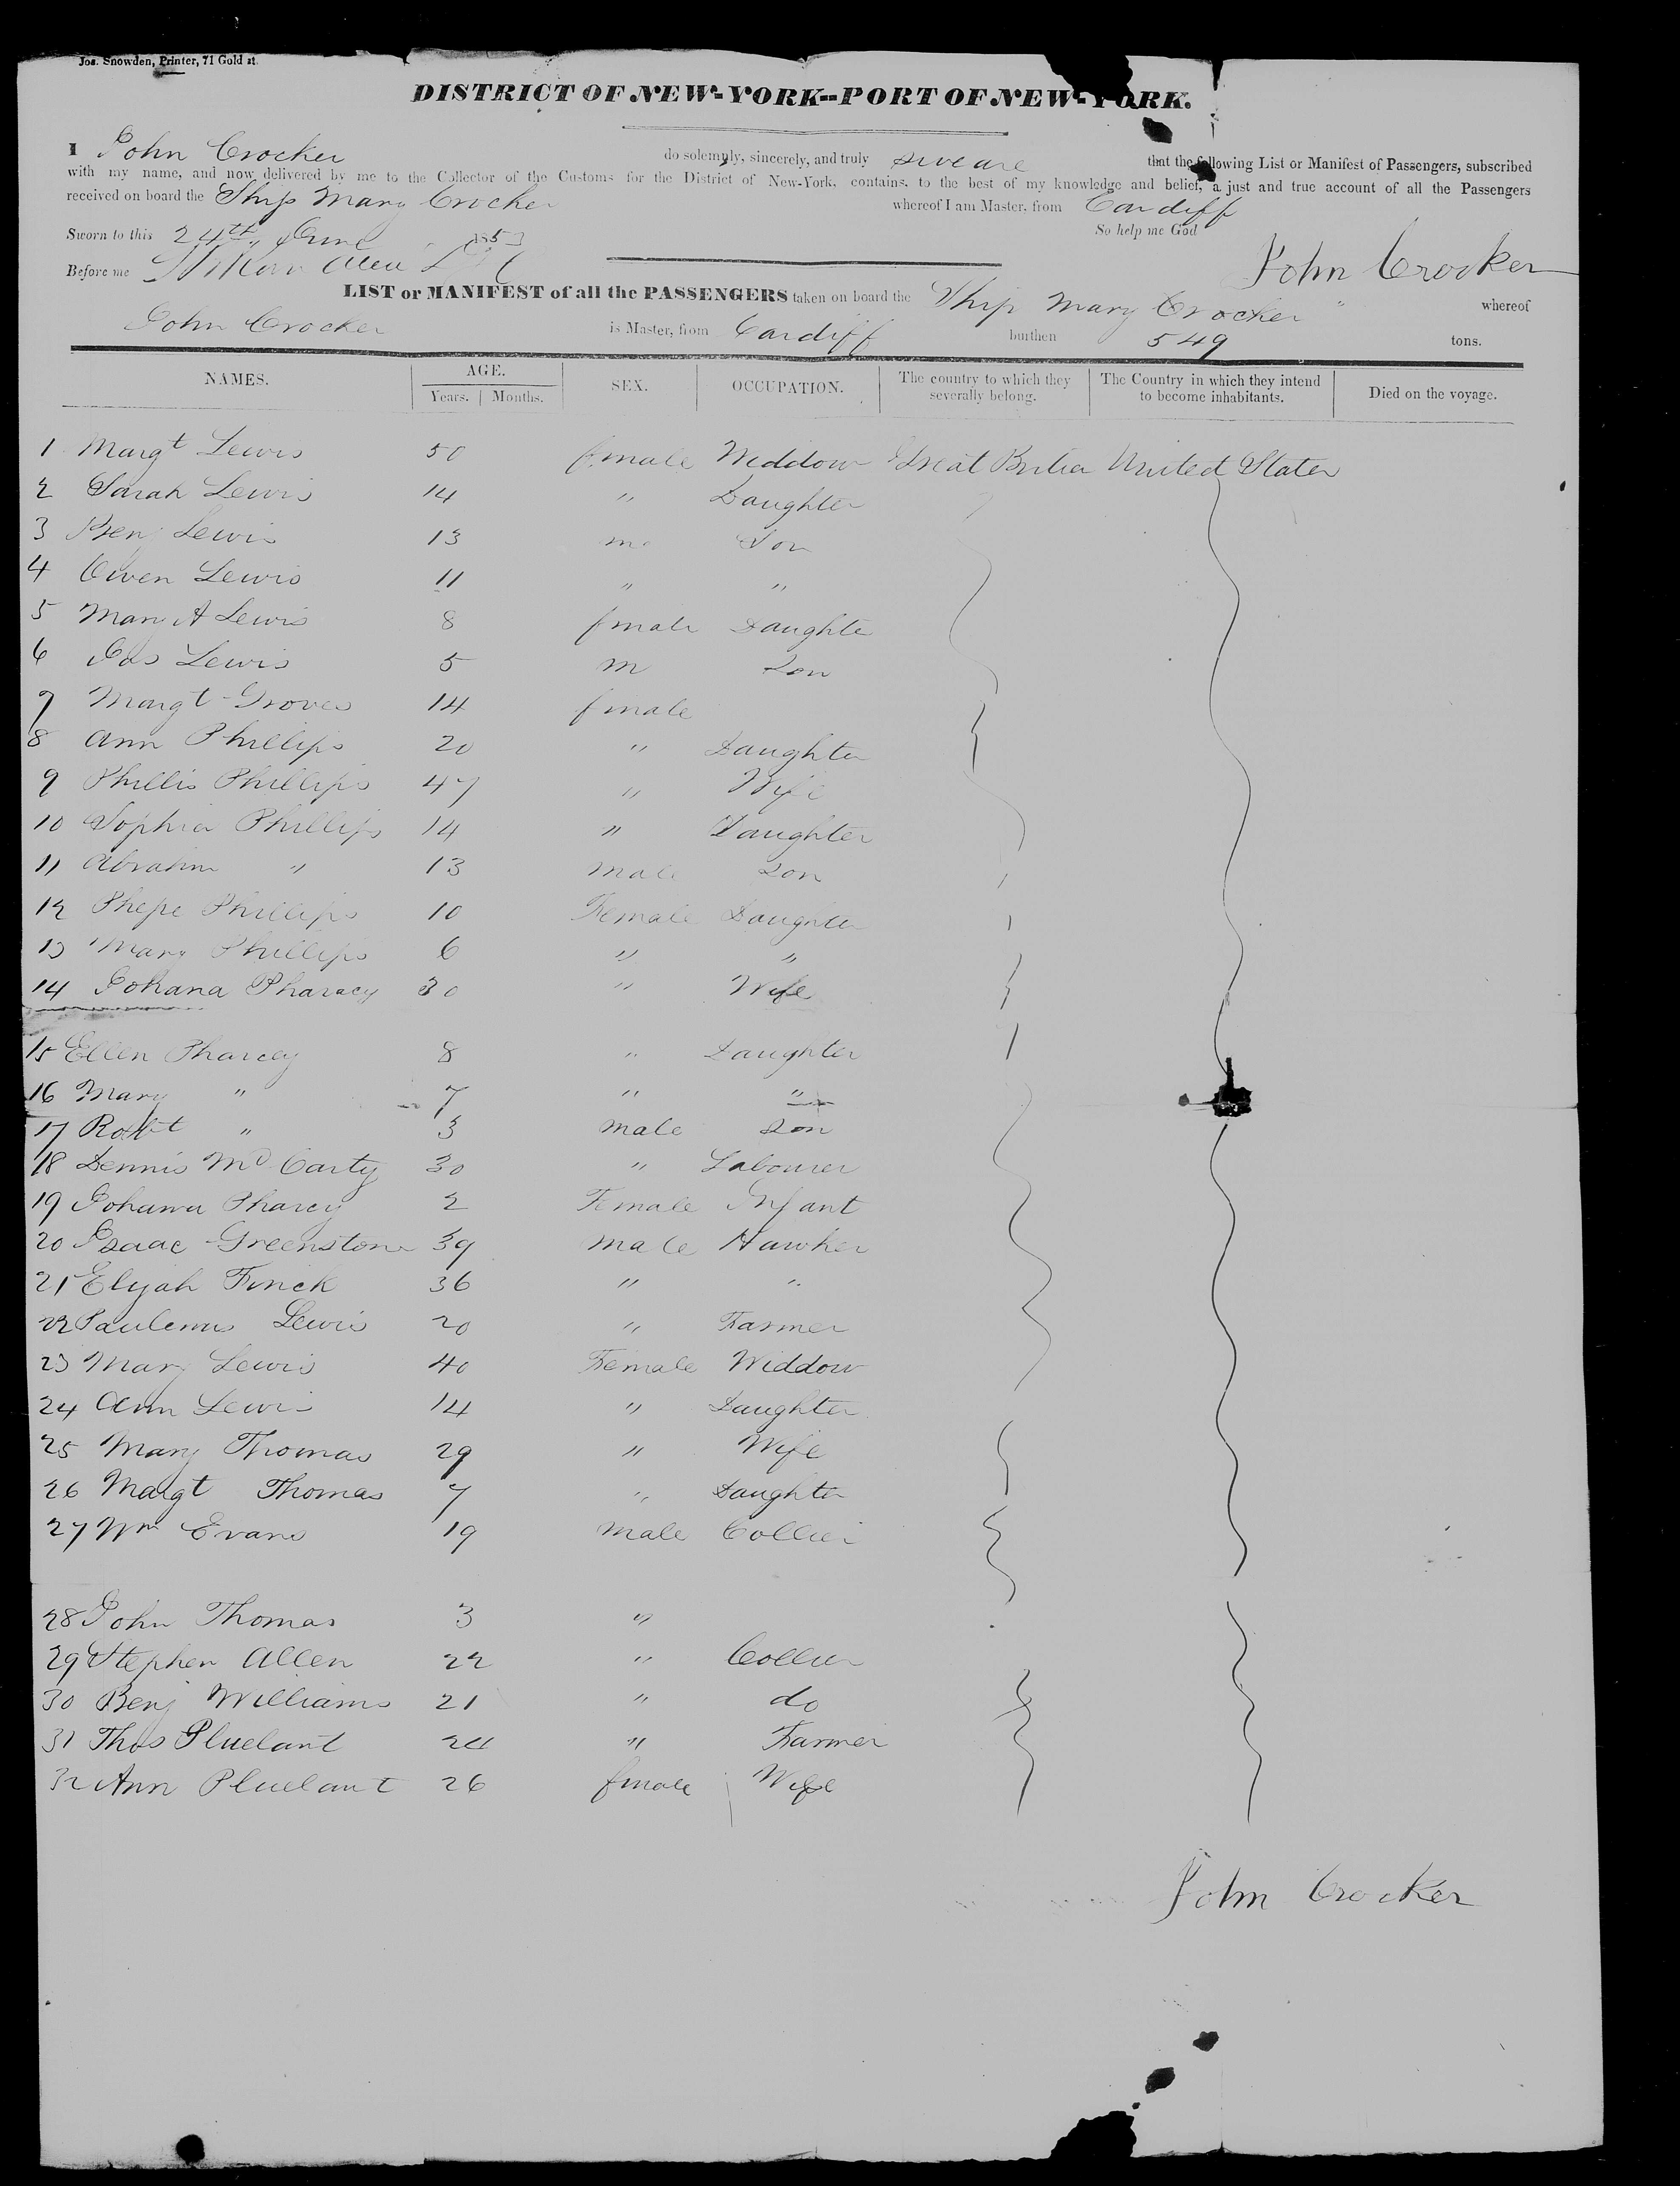 Jos. Snowden, Printer, 71 Gold st.
DISTRICT OF NEW-YORK--PORT OF NEW-YORK.
I John Crocker do solemnly, sincerely, and truly sweare that the following List or Manifest of Passengers, subscribed
with my name, and now delivered by me to the Collector of the Customs for the District of New-York, contains, to the best of my knowledge and belief, a just and true account of all the Passengers
received on board the Ship Mary Crocker whereof I am Master, from Cardiff
Sworn to this 24th June 1853 So help me God
Before me John Crocker
LIST or MANIFEST of all the PASSENGERS taken on board the Ship Mary Crocker whereof
John Crocker is Master, from Cardiff burthen 549 tons.
NAMES. AGE. Years. Months. SEX. OCCUPATION. The country to which they severally belong. The Country in which they intend to become inhabitants. Died on the voyage.
1 Margt Lewis 50 female Widdow Great Britia United States
2 Sarah Lewis 14 " Daughter
3 Benj Lewis 13 m Son
4 Owen Lewis 11 " "
5 Mary A Lewis 8 fmale Daughte
6 Jas Lewis 5 m Son
7 Margt Groves 14 fmale
8 Ann Phillips 20 " Daughter
9 Phillis Phillips 47 " Wife
10 Sophia Phillips 14 " Daughter
11 Abrahm " 13 male Son
12 Phepe Phillips 10 Female Daughter
13 Mary Phillips 6 " "
14 Johana Pharacy 30 " Wife
15 Ellen Pharcey 8 " Daughter
16 Mary " 7 " "
17 Robt " 3 male Son
18 Dennis McCarty 30 " Labourer
19 Johanna Pharcy 2 Female Infant
20 Isaac Greenstone 39 male Hawker
21 Elijah Finck 36 " "
22 Paulenus Lewis 20 " Farmer
23 Mary Lewis 40 Female Widdow
24 Ann Lewis 14 " Daughter
25 Mary Thomas 29 " Wife
26 Margt Thomas 7 " Daughter
27 Wm Evans 19 male Collier
28 John Thomas 3 "
29 Stephen Allen 22 " Collier
30 Benj Williams 21 " do
31 Thos Pluelant 24 " Farmer
32 Ann Pluelant 26 fmale Wife
John Crocker